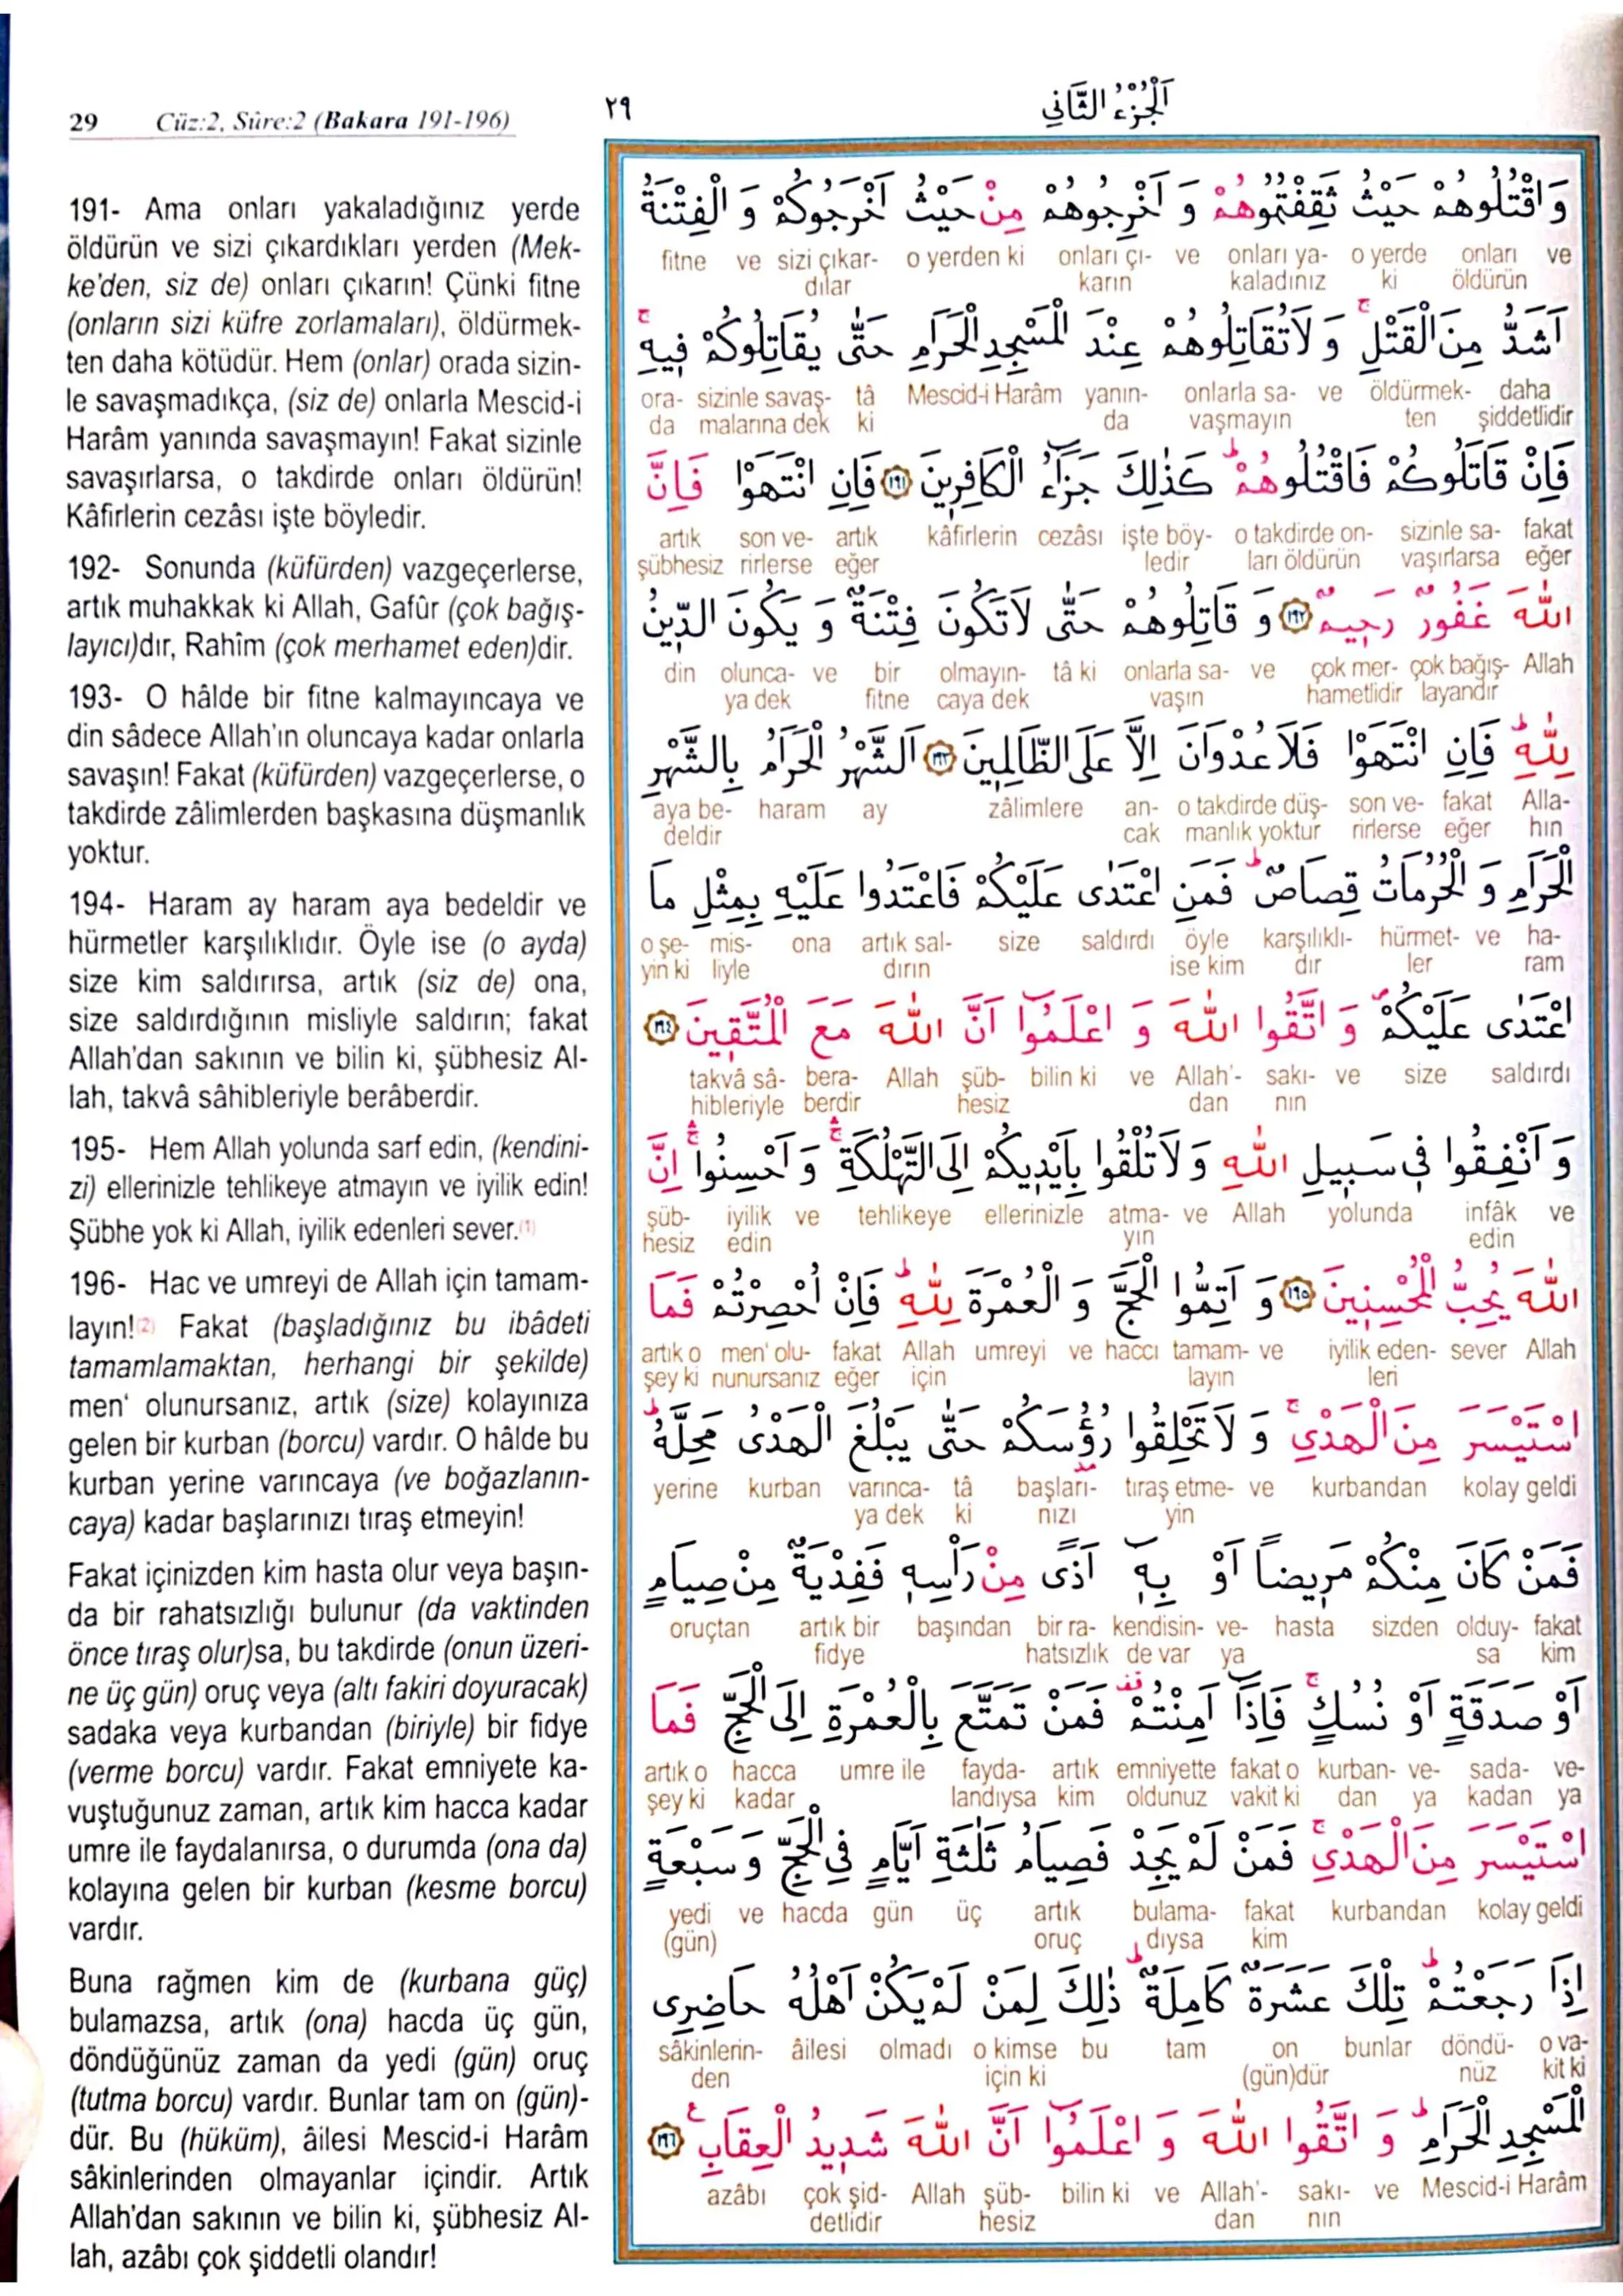 29 Cüz:2, Sûre:2 (Bakara 191-196)
191- Ama onları yakaladığınız yerde
öldürün ve sizi çıkardıkları yerden (Mek-
ke'den, siz de) onları çıkarın! Çünki fitne
(onların sizi küfre zorlamaları), öldürmek-
ten daha kötüdür. Hem (onlar) orada sizin-
le savaşmadıkça, (siz de) onlarla Mescid-i
Harâm yanında savaşmayın! Fakat sizinle
savaşırlarsa, o takdirde onları öldürün!
Kâfirlerin cezâsı işte böyledir.
192- Sonunda (küfürden) vazgeçerlerse,
artık muhakkak ki Allah, Gafûr (çok bağış-
layıcı)dır, Rahîm (çok merhamet eden)dir.
193- O hâlde bir fitne kalmayıncaya ve
din sâdece Allah'ın oluncaya kadar onlarla
savaşın! Fakat (küfürden) vazgeçerlerse, o
takdirde zâlimlerden başkasına düşmanlık
yoktur.
194- Haram ay haram aya bedeldir ve
hürmetler karşılıklıdır. Öyle ise (o ayda)
size kim saldırırsa, artık (siz de) ona,
size saldırdığının misliyle saldırın; fakat
Allah'dan sakının ve bilin ki, şübhesiz Al-
lah, takvâ sâhibleriyle berâberdir.
195- Hem Allah yolunda sarf edin, (kendini-
zi) ellerinizle tehlikeye atmayın ve iyilik edin!
Şübhe yok ki Allah, iyilik edenleri sever.(1)
196- Hac ve umreyi de Allah için tamam-
layın!(2) Fakat (başladığınız bu ibâdeti
tamamlamaktan, herhangi bir şekilde)
men' olunursanız, artık (size) kolayınıza
gelen bir kurban (borcu) vardır. O hâlde bu
kurban yerine varıncaya (ve boğazlanın-
caya) kadar başlarınızı tıraş etmeyin!
Fakat içinizden kim hasta olur veya başın-
da bir rahatsızlığı bulunur (da vaktinden
önce tıraş olur)sa, bu takdirde (onun üzeri-
ne üç gün) oruç veya (altı fakiri doyuracak)
sadaka veya kurbandan (biriyle) bir fidye
(verme borcu) vardır. Fakat emniyete ka-
vuştuğunuz zaman, artık kim hacca kadar
umre ile faydalanırsa, o durumda (ona da)
kolayına gelen bir kurban (kesme borcu)
vardır.
Buna rağmen kim de (kurbana güç)
bulamazsa, artık (ona) hacda üç gün,
döndüğünüz zaman da yedi (gün) oruç
(tutma borcu) vardır. Bunlar tam on (gün)-
dür. Bu (hüküm), âilesi Mescid-i Harâm
sâkinlerinden olmayanlar içindir. Artık
Allah'dan sakının ve bilin ki, şübhesiz Al-
lah, azâbı çok şiddetli olandır!
اَلْجُزْءُ الثَّانِي ٢٩
وَ اقْتُلُوهُمْ حَيْثُ ثَقِفْتُمُوهُمْ وَ اَخْرِجُوهُمْ مِنْ حَيْثُ اَخْرَجُوكُمْ وَ الْفِتْنَةُ
fitne ve sizi çıkar- o yerden ki onları çı- ve onları ya- o yerde onları ve
dılar karın kaladınız ki öldürün
اَشَدُّ مِنَ الْقَتْلِ ۚ وَ لَا تُقَاتِلُوهُمْ عِنْدَ الْمَسْجِدِ الْحَرَامِ حَتّٰى يُقَاتِلُوكُمْ ف۪يهِ ۚ
ora- sizinle savaş- tâ Mescid-i Harâm yanın- onlarla sa- ve öldürmek- daha
da malarına dek ki da vaşmayın ten şiddetlidir
فَاِنْ قَاتَلُوكُمْ فَاقْتُلُوهُمْ ۜ كَذٰلِكَ جَزَٓاءُ الْكَافِر۪ينَ ﴿١٩١﴾ فَاِنِ انْتَهَوْا فَاِنَّ
artık son ve- artık kâfirlerin cezâsı işte böy- o takdirde on- sizinle sa- fakat
şübhesiz rirlerse eğer ledir ları öldürün vaşırlarsa eğer
اللّٰهَ غَفُورٌ رَح۪يمٌ ﴿١٩٢﴾ وَ قَاتِلُوهُمْ حَتّٰى لَا تَكُونَ فِتْنَةٌ وَ يَكُونَ الدّ۪ينُ
din olunca- ve bir olmayın- tâ ki onlarla sa- ve çok mer- çok bağış- Allah
ya dek fitne caya dek vaşın hametlidir layandır
لِلّٰهِ ۜ فَاِنِ انْتَهَوْا فَلَا عُدْوَانَ اِلَّا عَلَى الظَّالِم۪ينَ ﴿١٩٣﴾ اَلشَّهْرُ الْحَرَامُ بِالشَّهْرِ
aya be- haram ay zâlimlere an- o takdirde düş- son ve- fakat Alla-
deldir cak manlık yoktur rirlerse eğer hın
الْحَرَامِ وَ الْحُرُمَاتُ قِصَاصٌ ۜ فَمَنِ اعْتَدٰى عَلَيْكُمْ فَاعْتَدُوا عَلَيْهِ بِمِثْلِ مَا
o şe- mis- ona artık sal- size saldırdı öyle karşılıklı- hürmet- ve ha-
yin ki liyle dırın ise kim dır ler ram
اعْتَدٰى عَلَيْكُمْ ۖ وَ اتَّقُوا اللّٰهَ وَ اعْلَمُٓوا اَنَّ اللّٰهَ مَعَ الْمُتَّق۪ينَ ﴿١٩٤﴾
takvâ sâ- bera- Allah şüb- bilin ki ve Allah'- sakı- ve size saldırdı
hibleriyle berdir hesiz dan nın
وَ اَنْفِقُوا ف۪ي سَب۪يلِ اللّٰهِ وَ لَا تُلْقُوا بِاَيْد۪يكُمْ اِلَى التَّهْلُكَةِ ۚۛ وَ اَحْسِنُوا ۚۛ اِنَّ
şüb- iyilik ve tehlikeye ellerinizle atma- ve Allah yolunda infâk ve
hesiz edin yın edin
اللّٰهَ يُحِبُّ الْمُحْسِن۪ينَ ﴿١٩٥﴾ وَ اَتِمُّوا الْحَجَّ وَ الْعُمْرَةَ لِلّٰهِ ۜ فَاِنْ اُحْصِرْتُمْ فَمَا
artık o men' olu- fakat Allah umreyi ve haccı tamam- ve iyilik eden- sever Allah
şey ki nunursanız eğer için layın leri
اسْتَيْسَرَ مِنَ الْهَدْيِ ۚ وَ لَا تَحْلِقُوا رُؤُسَكُمْ حَتّٰى يَبْلُغَ الْهَدْيُ مَحِلَّهُ ۜ
yerine kurban varınca- tâ başları- tıraş etme- ve kurbandan kolay geldi
ya dek ki nızı yin
فَمَنْ كَانَ مِنْكُمْ مَر۪يضًا اَوْ بِه۪ٓ اَذًى مِنْ رَأْسِه۪ فَفِدْيَةٌ مِنْ صِيَامٍ
oruçtan artık bir başından bir ra- kendisin- ve- hasta sizden olduy- fakat
fidye hatsızlık de var ya sa kim
اَوْ صَدَقَةٍ اَوْ نُسُكٍ ۚ فَاِذَٓا اَمِنْتُمْ ۠ فَمَنْ تَمَتَّعَ بِالْعُمْرَةِ اِلَى الْحَجِّ فَمَا
artık o hacca umre ile fayda- artık emniyette fakat o kurban- ve- sada- ve-
şey ki kadar landıysa kim oldunuz vakit ki dan ya kadan ya
اسْتَيْسَرَ مِنَ الْهَدْيِ ۚ فَمَنْ لَمْ يَجِدْ فَصِيَامُ ثَلٰثَةِ اَيَّامٍ فِي الْحَجِّ وَ سَبْعَةٍ
yedi ve hacda gün üç artık bulama- fakat kurbandan kolay geldi
(gün) oruç dıysa kim
اِذَا رَجَعْتُمْ ۜ تِلْكَ عَشَرَةٌ كَامِلَةٌ ۜ ذٰلِكَ لِمَنْ لَمْ يَكُنْ اَهْلُهُ حَاضِرِي
sâkinlerin- âilesi olmadı o kimse bu tam on bunlar döndü- o va-
den için ki (gün)dür nüz kit ki
الْمَسْجِدِ الْحَرَامِ ۜ وَ اتَّقُوا اللّٰهَ وَ اعْلَمُٓوا اَنَّ اللّٰهَ شَد۪يدُ الْعِقَابِ ﴿١٩٦﴾
azâbı çok şid- Allah şüb- bilin ki ve Allah'- sakı- ve Mescid-i Harâm
detlidir hesiz dan nın